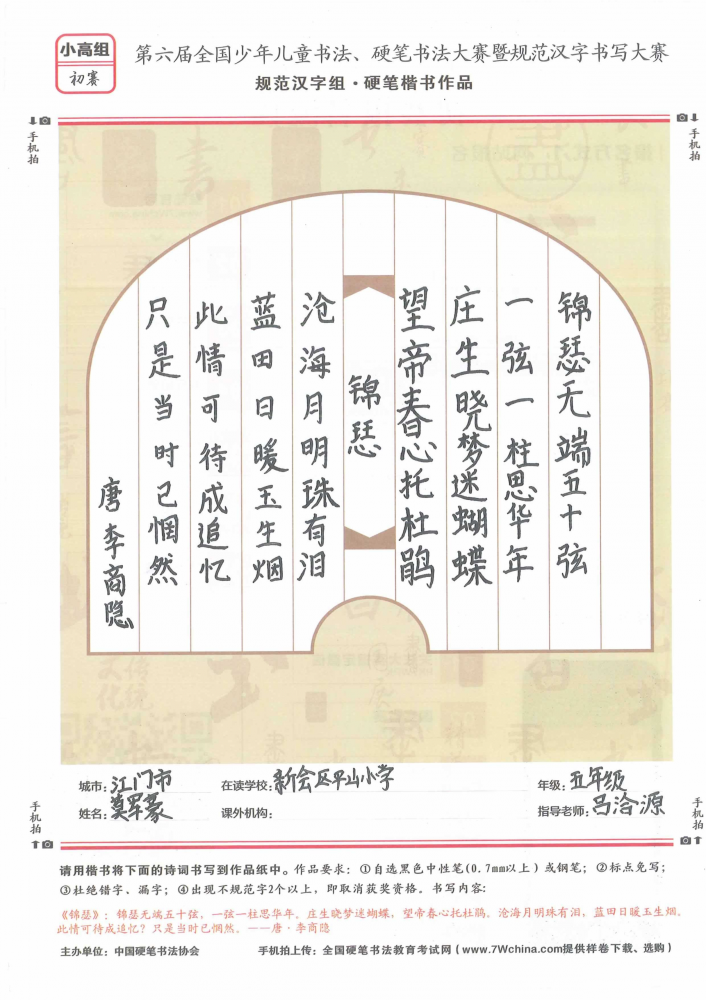 小高组
初赛
第六届全国少年儿童书法、硬笔书法大赛暨规范汉字书写大赛
规范汉字组·硬笔楷书作品
手机拍
手机拍
锦瑟无端五十弦
一弦一柱思华年
庄生晓梦迷蝴蝶
望帝春心托杜鹃
锦瑟
沧海月明珠有泪
蓝田日暖玉生烟
此情可待成追忆
只是当时已惘然
唐李商隐
城市：江门市
在读学校：新会区平山小学
年级：五年级
姓名：莫军豪
课外机构：
指导老师：吕洽源
手机拍
手机拍
请用楷书将下面的诗词书写到作品纸中。作品要求：①自选黑色中性笔(0.7mm以上)或钢笔；②标点免写；
③杜绝错字、漏字；④出现不规范字2个以上，即取消获奖资格。书写内容：
《锦瑟》：锦瑟无端五十弦，一弦一柱思华年。庄生晓梦迷蝴蝶，望帝春心托杜鹃。沧海月明珠有泪，蓝田日暖玉生烟。
此情可待成追忆？只是当时已惘然。——唐·李商隐
主办单位：中国硬笔书法协会
手机拍上传：全国硬笔书法教育考试网（www.7Wchina.com提供样卷下载、选购）